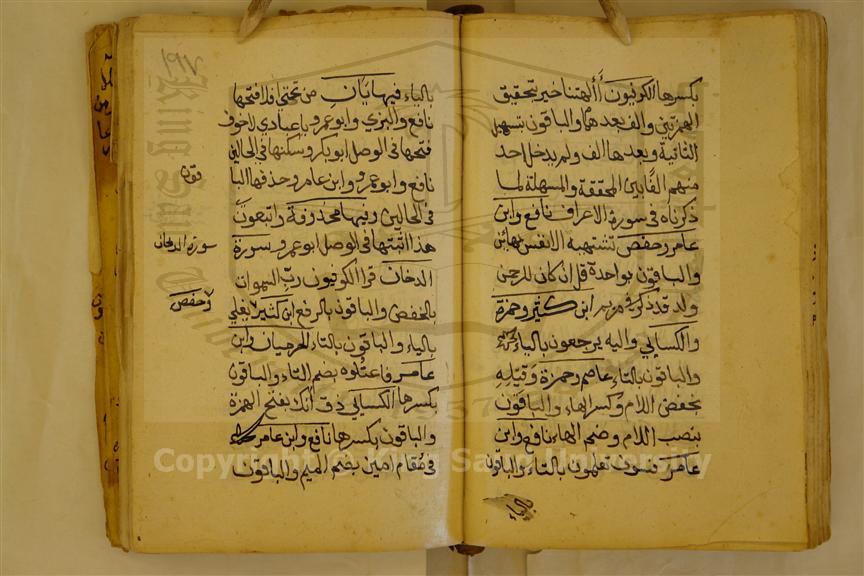 بكسرها الكوفيون أألهتنا خير بتحقيق
الهمزتين والف بعدهما والباقون بتسهيل
الثانية وبعدها الف ولم يدخل احد
منهم الفا بين المحققة والمسهلة لما
ذكرناه في سورة الاعراف نافع وابن
عامر وحفص تشتهيه الانفس بهائين
والباقون بواحدة قل ان كان للرحمن
ولد قد ذكر في مريم ابن كثير وحمزة
والكسائي واليه يرجعون بالياء
والباقون بالتاء عاصم وحمزة وقيله
بخفض اللام وكسر الهاء والباقون
بنصب اللام وضم الهاء نافع وابن
عامر فسوف تعلمون بالتاء والباقون
بالياء
١٩٧
بالياء فيها ياآن من تحتي افلا فتحها
نافع والبزي وابو عمرو يا عبادي لا خوف
فتحها في الوصل ابو بكر وسكنها في الحالين
نافع وابو عمرو وابن عامر وحذفها البا
قون
في الحالين وفيها محذوفة واتبعون
هذا اثبتها في الوصل ابو عمرو سورة
سورة الدخان
الدخان قرا الكوفيون رب السموات
بالخفض والباقون بالرفع ابن كثير يغلي
وحفص
بالياء والباقون بالتاء الحرميان وابن
عامر فاعتلوه بضم التاء والباقون
بكسرها الكسائي ذق انك بفتح الهمزة
والباقون بكسرها نافع وابن عامر
في مقام امين بضم الميم والباقون
King Saud University
1957
Copyright © King Saud University